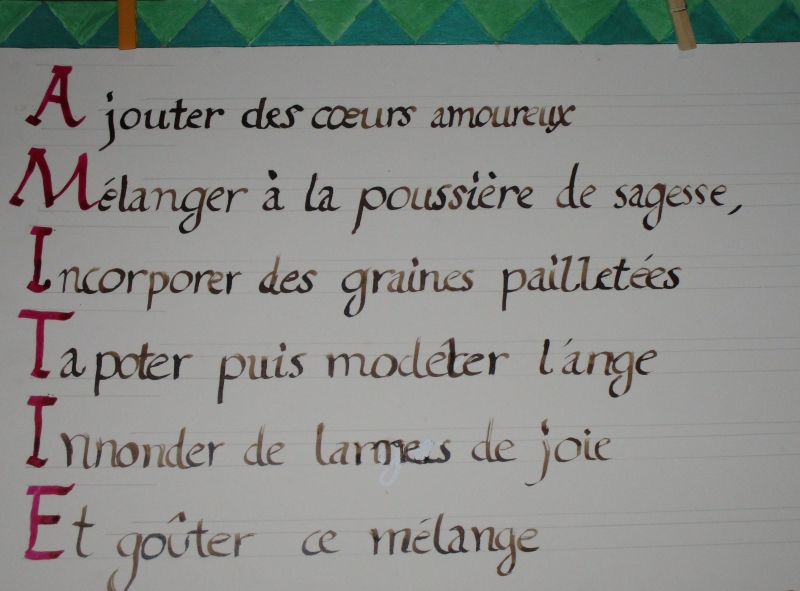 Ajouter des cœurs amoureux
Mélanger à la poussière de sagesse,
Incorporer des graines pailletées
Tapoter puis modeler l'ánge
Innonder de larmes de joie
Et goûter ce mélange